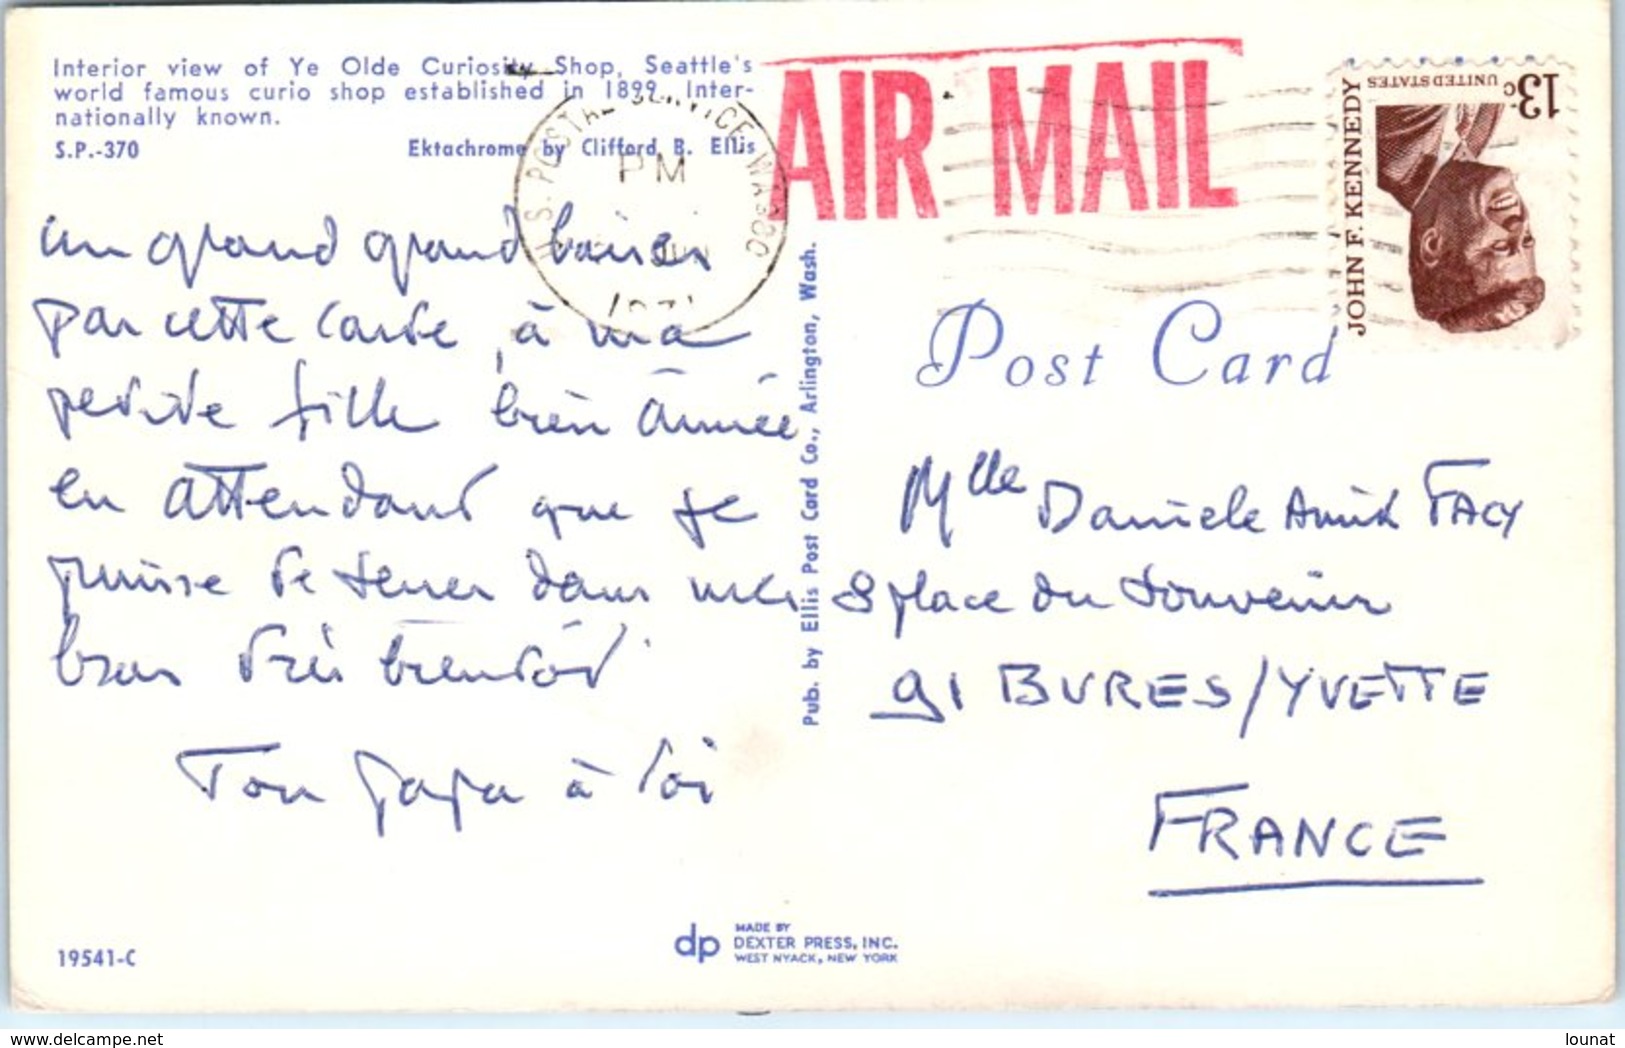 Interior view of Ye Olde Curiosity Shop, Seattle's
world famous curio shop established in 1899. Inter-
nationally known.
S.P.-370 Ektachrome by Clifford B. Ellis
U.S. POSTAL SERVICE WA 980
PM
1971
AIR MAIL
13c
UNITED STATES
JOHN F. KENNEDY
un grand grand baiser
par cette carte, à ma
petite fille bien aimée
en attendant que je
puisse te tenir dans mes
bras très bientôt
Ton papa à toi
Pub. by Ellis Post Card Co., Arlington, Wash.
Post Card
Mlle Daniele FACY
8 place du Souvenir
91 BURES/YVETTE
FRANCE
19541-C
dp MADE BY
DEXTER PRESS, INC.
WEST NYACK, NEW YORK
delcampe.net
lounat